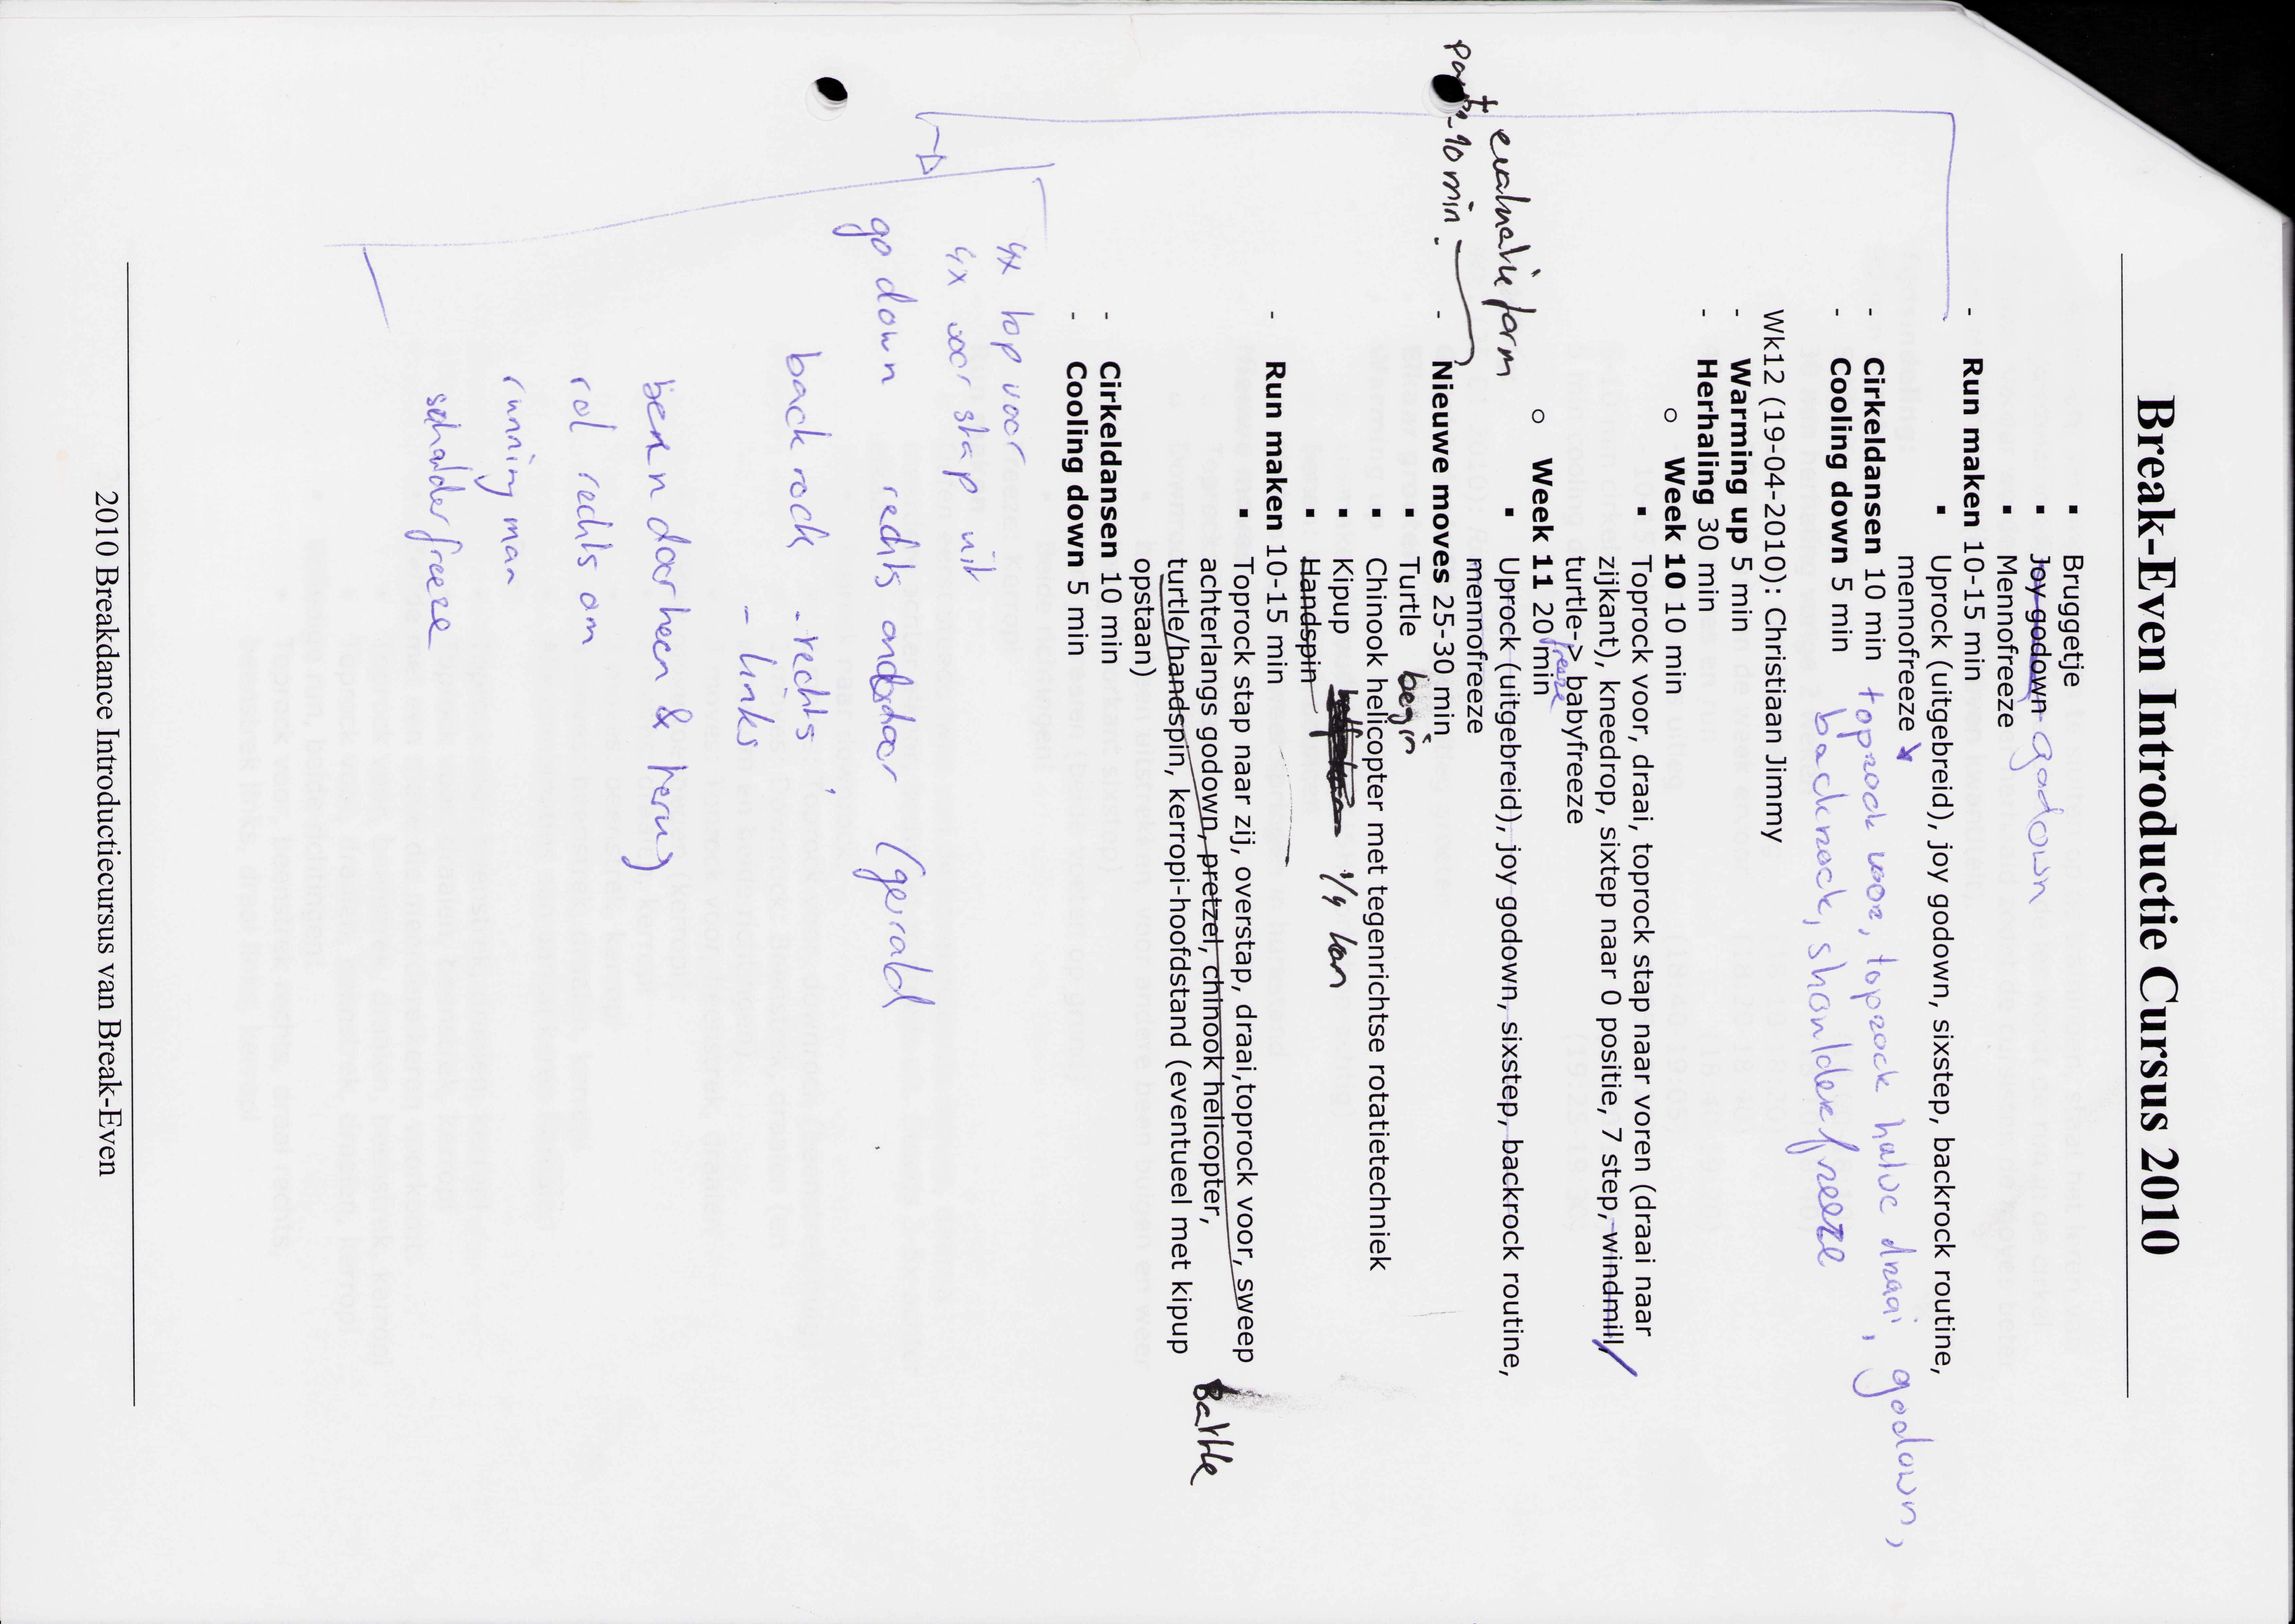 Break-Even Introductie Cursus 2010
▪ Bruggetje
▪ Joy godown godown
▪ Mennofreeze
- Run maken 10-15 min
▪ Uprock (uitgebreid), joy godown, sixstep, backrock routine,
mennofreeze
- Cirkeldansen 10 min toprock voor, toprock halve draai, godown,
- Cooling down 5 min backrock, shoulderfreeze
Wk12 (19-04-2010): Christiaan Jimmy
- Warming up 5 min
- Herhaling 30 min
○ Week 10 10 min
▪ Toprock voor, draai, toprock stap naar voren (draai naar
zijkant), kneedrop, sixtep naar 0 positie, 7 step, windmill,
turtle-> babyfreeze
freeze
○ Week 11 20 min
▪ Uprock (uitgebreid), joy godown, sixstep, backrock routine,
mennofreeze
+ evaluatie form
10 min.
- Nieuwe moves 25-30 min
▪ Turtle begin
▪ Chinook helicopter met tegenrichtse rotatietechniek
▪ Kipup 1/4 kan
▪ Handspin
- Run maken 10-15 min
▪ Toprock stap naar zij, overstap, draai,toprock voor, sweep
achterlangs godown, pretzel, chinook helicopter,
turtle/handspin, kerropi-hoofdstand (eventueel met kipup
opstaan)
Battle
- Cirkeldansen 10 min
- Cooling down 5 min
4x top voor
4x voor stap uit
go down rechts onderdoor (gerald
back rock - rechts
- links
benen doorheen & terug
rol rechts om
running man
schouderfreeze
2010 Breakdance Introductiecursus van Break-Even